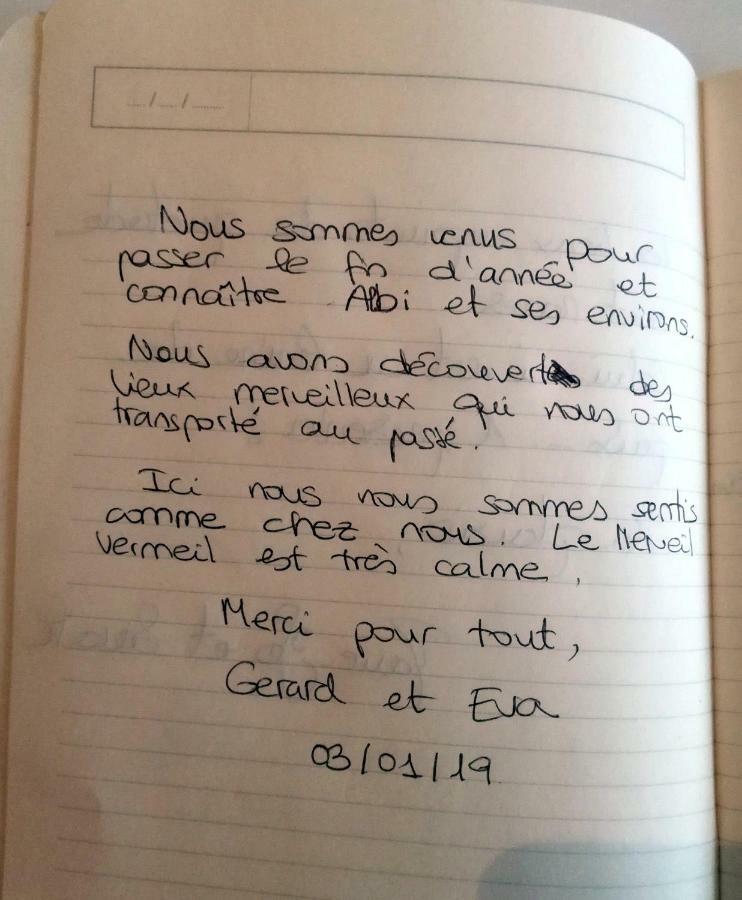 Nous sommes venus pour
passer le fin d'année et
connaître Albi et ses environs.
Nous avons découvert des
lieux merveilleux qui nous ont
transporté au passé.
Ici nous nous sommes sentis
comme chez nous. Le Merveil
vermeil est très calme,
Merci pour tout,
Gerard et Eva
03/01/19